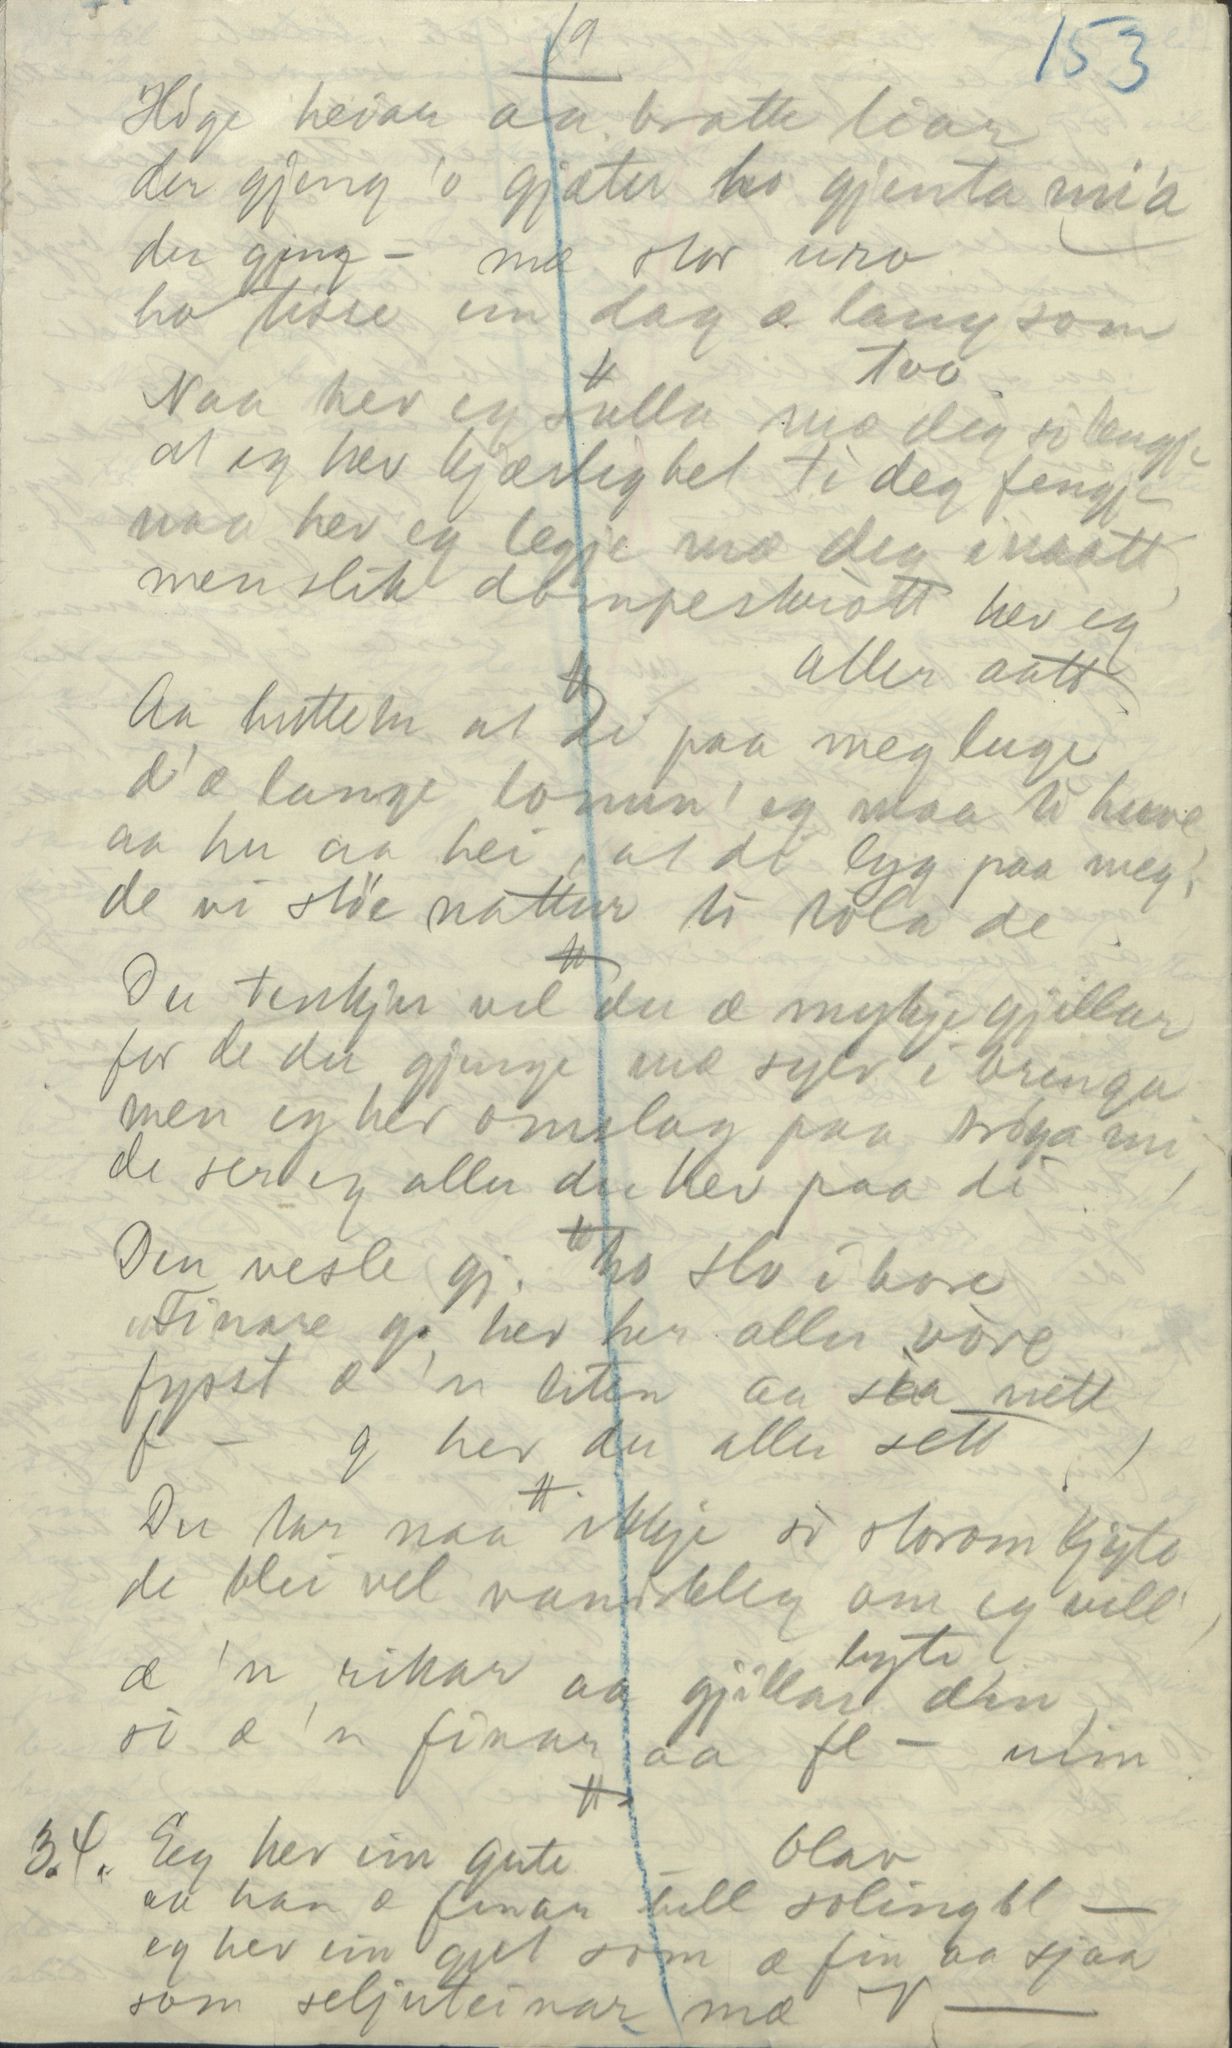 19
153
Höge heiar aa bratte liar
der gjeng 'o gjæter ho gjenta mi'a
der gjeng – mæ stor uro
ho tisse ein dag æ langsom
too
Naa her eg sulla mæ deg so lengje
at eg hev kjærlighet ti deg fengje
naa hev eg legje mæ deg i naatt
men slik dömpeskiött hev eg
aller aatt
Aa huttetu at di paa meg luge
d'æ lange lomun' eg maa ti huve
aa hu aa hei, at di lyg paa meg,
de vi stöe nattur ti tola de
Du tenkjer vel du æ mykje gjillar
for de du gjenge mæ sylv i bringa
men eg hev omslag paa tröga mi,
de ser eg aller du hev paa di
Den vesle gj. ho slo i bore
Finare g. hev her aller vöre
fysst æ 'n liten aa sia nett
f – g hev du aller sett
Du tar naa ikkje so storom kjyte
de blei vel vandsleg om eg vill
byte
æ 'n rikar aa gjillar din
so æ 'n finar aa fl – min
34. Eeg hev ein gute blav
aa han æ finar hell solingbl –
eg hev ein gut som æ fin aa sjaa
som seljuteinar mæ V —